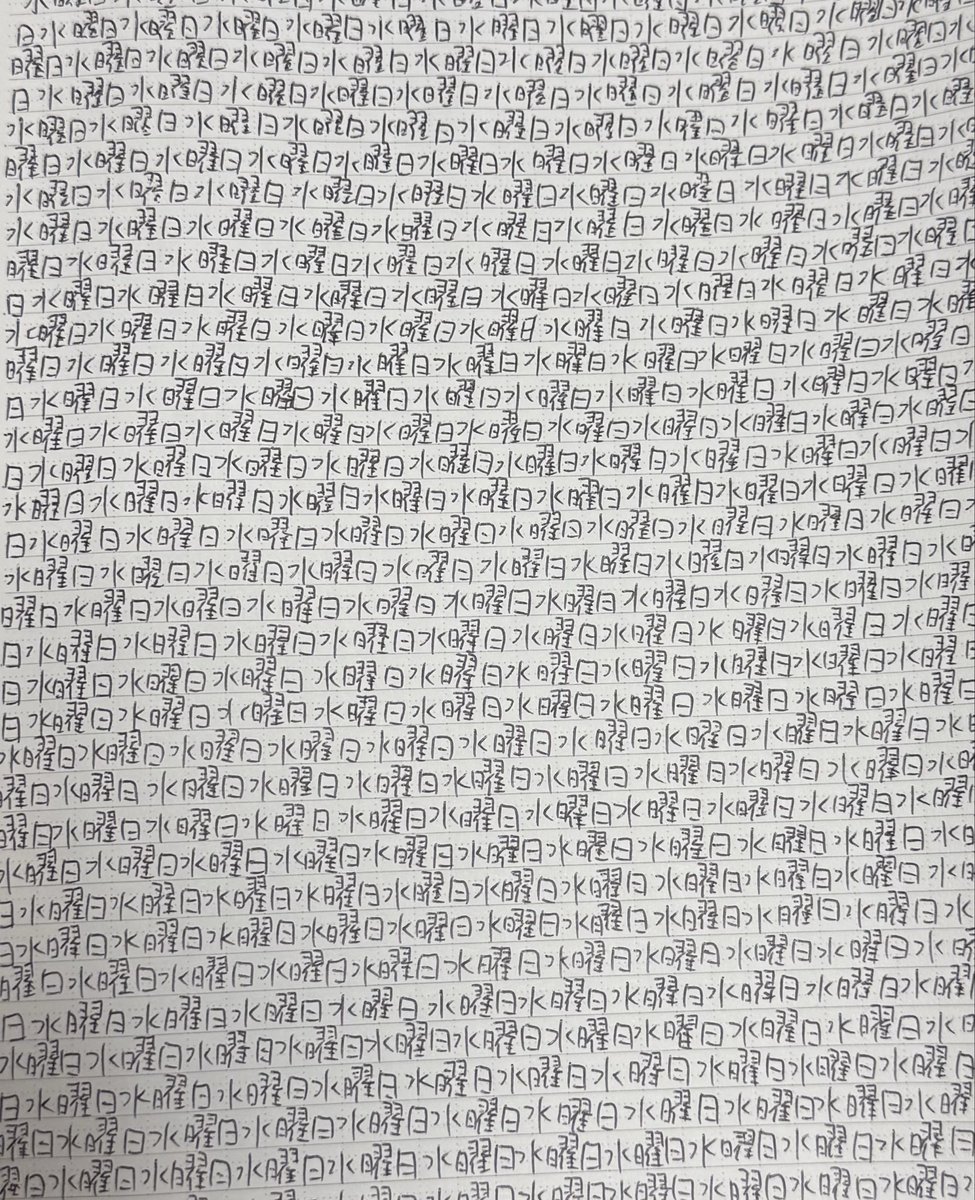 日水曜日水曜日水曜日水曜日水曜日水曜日水曜日水曜日水曜日水曜日水曜日
曜日水曜日水曜日水曜日水曜日水曜日水曜日水曜日水曜日水曜日水曜日水
日水曜日水曜日水曜日水曜日水曜日水曜日水曜日水曜日水曜日水曜日水
水曜日水曜日水曜日水曜日水曜日水曜日水曜日水曜日水曜日水曜日水曜
曜日水曜日水曜日水曜日水曜日水曜日水曜日水曜日水曜日水曜日水曜日水
水曜日水曜日水曜日水曜日水曜日水曜日水曜日水曜日水曜日水曜日水曜
水曜日水曜日水曜日水曜日水曜日水曜日水曜日水曜日水曜日水曜日水曜
曜日水曜日水曜日水曜日水曜日水曜日水曜日水曜日水曜日水曜日水曜日
日水曜日水曜日水曜日水曜日水曜日水曜日水曜日水曜日水曜日水曜日水
水曜日水曜日水曜日水曜日水曜日水曜日水曜日水曜日水曜日水曜日水曜
曜日水曜日水曜日水曜日水曜日水曜日水曜日水曜日水曜日水曜日水曜日
日水曜日水曜日水曜日水曜日水曜日水曜日水曜日水曜日水曜日水曜日水
水曜日水曜日水曜日水曜日水曜日水曜日水曜日水曜日水曜日水曜日水曜日
日水曜日水曜日水曜日水曜日水曜日水曜日水曜日水曜日水曜日水曜日水
水曜日水曜日水曜日水曜日水曜日水曜日水曜日水曜日水曜日水曜日水曜
日水曜日水曜日水曜日水曜日水曜日水曜日水曜日水曜日水曜日水曜日水
水曜日水曜日水曜日水曜日水曜日水曜日水曜日水曜日水曜日水曜日水
曜日水曜日水曜日水曜日水曜日水曜日水曜日水曜日水曜日水曜日水曜
日水曜日水曜日水曜日水曜日水曜日水曜日水曜日水曜日水曜日水曜
日水曜日水曜日水曜日水曜日水曜日水曜日水曜日水曜日水曜日水曜日
日水曜日水曜日水曜日水曜日水曜日水曜日水曜日水曜日水曜日水曜
水曜日水曜日水曜日水曜日水曜日水曜日水曜日水曜日水曜日水曜日水
曜日水曜日水曜日水曜日水曜日水曜日水曜日水曜日水曜日水曜日水
曜日水曜日水曜日水曜日水曜日水曜日水曜日水曜日水曜日水曜日水曜
水曜日水曜日水曜日水曜日水曜日水曜日水曜日水曜日水曜日水曜日水
日水曜日水曜日水曜日水曜日水曜日水曜日水曜日水曜日水曜日水曜日水
日水曜日水曜日水曜日水曜日水曜日水曜日水曜日水曜日水曜日水曜日水
曜日水曜日水曜日水曜日水曜日水曜日水曜日水曜日水曜日水曜日水曜
日水曜日水曜日水曜日水曜日水曜日水曜日水曜日水曜日水曜日水曜
水曜日水曜日水曜日水曜日水曜日水曜日水曜日水曜日水曜日水曜日水
日水曜日水曜日水曜日水曜日水曜日水曜日水曜日水曜日水曜日水曜日
曜日水曜日水曜日水曜日水曜日水曜日水曜日水曜日水曜日水曜日水曜
曜日水曜日水曜日水曜日水曜日水曜日水曜日水曜日水曜日水曜日水曜日